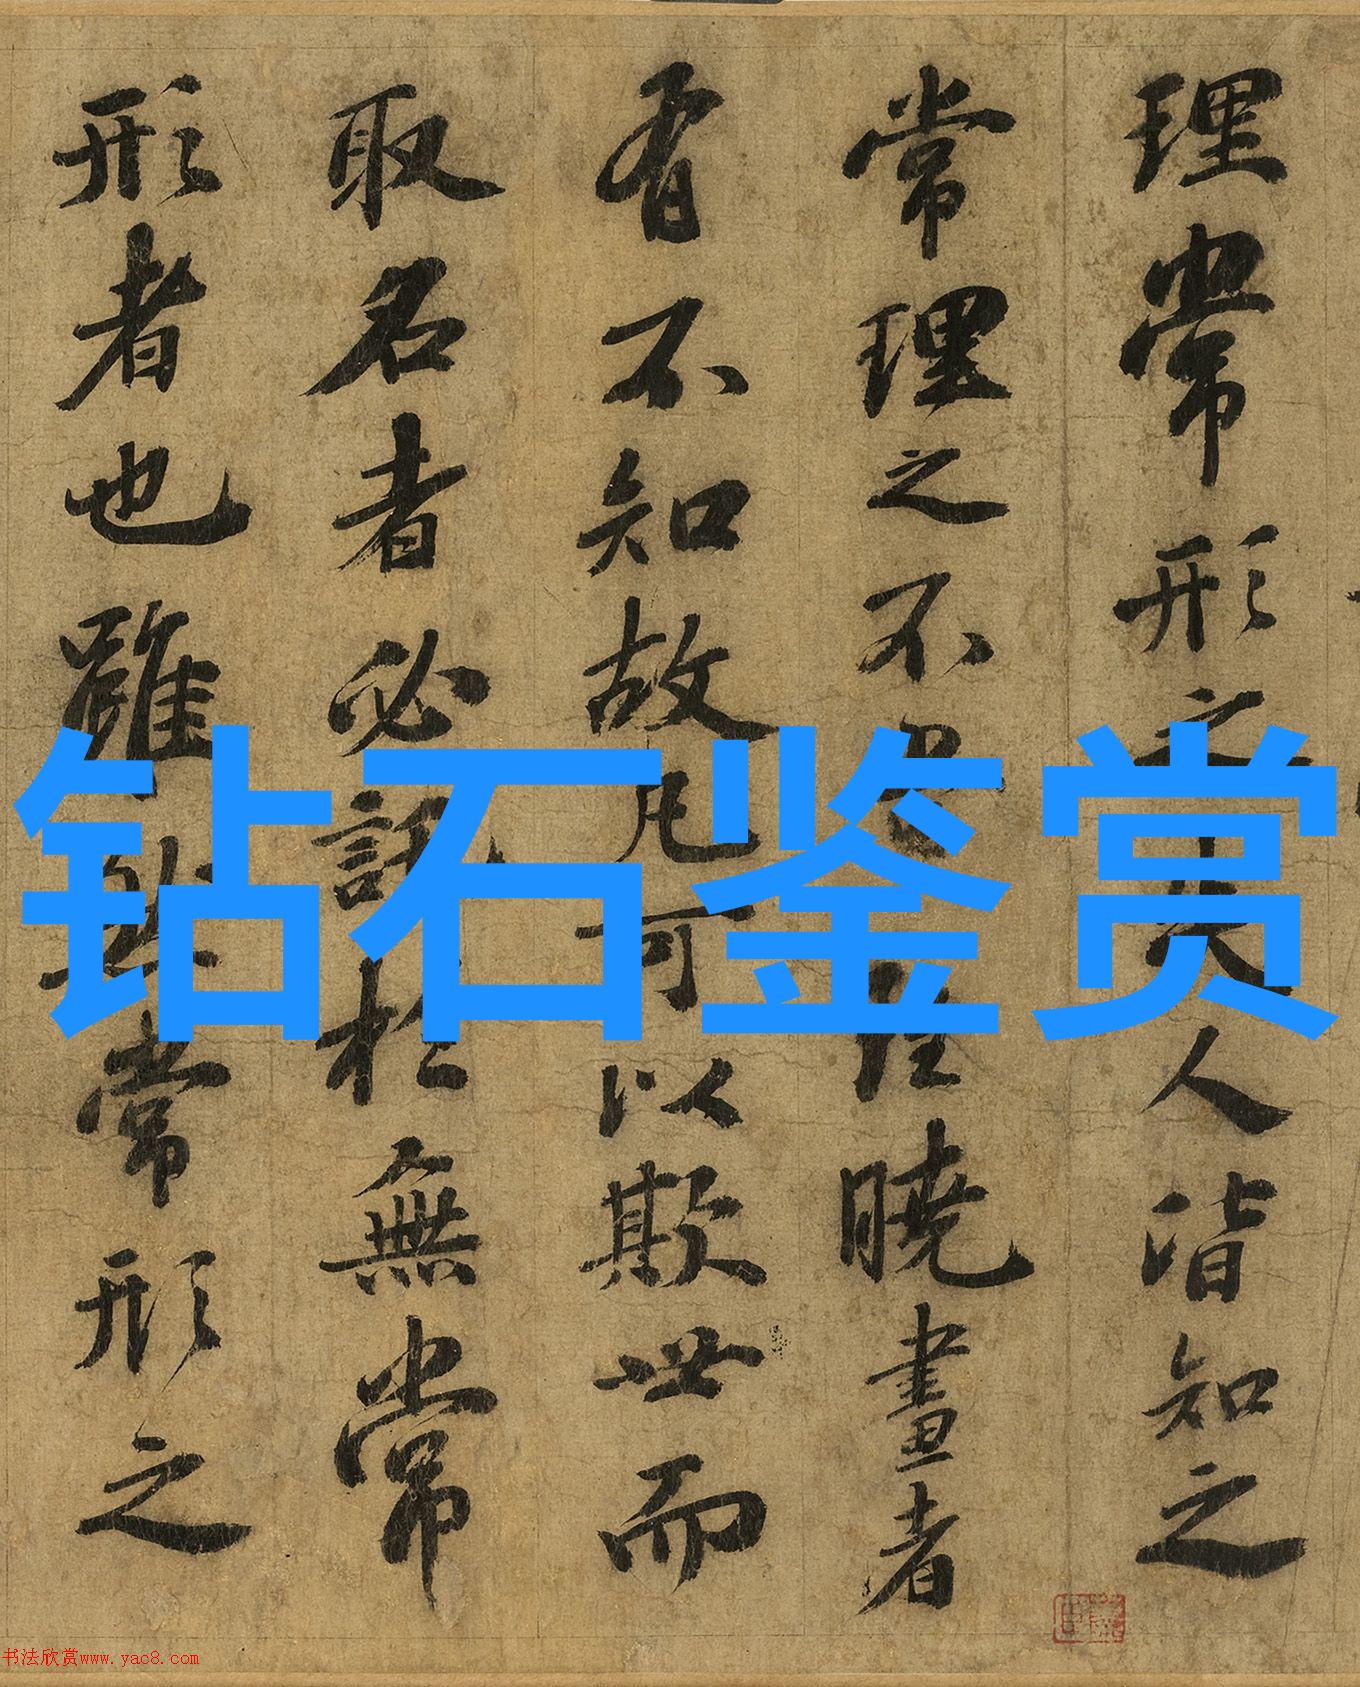 理常形之失人皆知之
常理之不曉畫者
有不知故凡可以欺世而
取名者必託於無常
形者也雖然常形之
钻石鉴赏
书法欣赏www.yac8.com